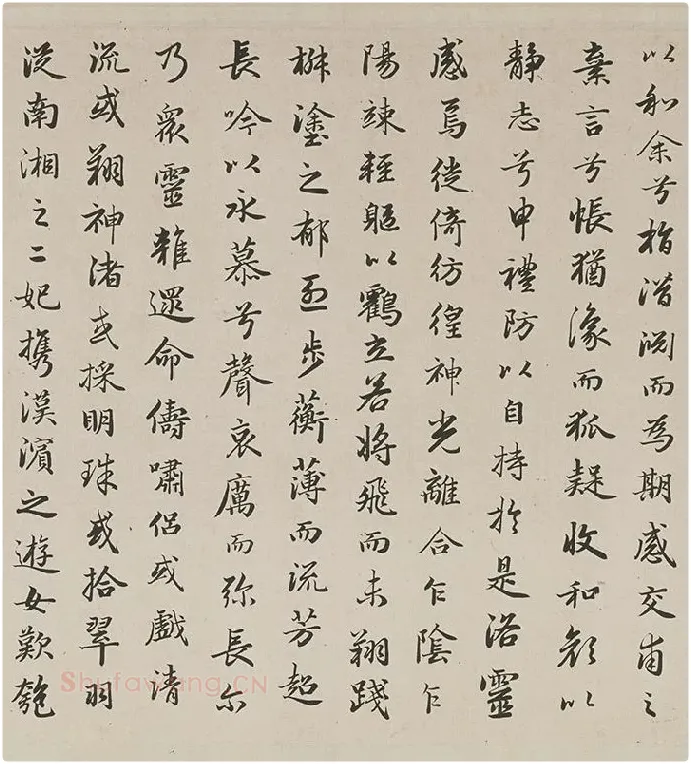 以和余兮指潛渕而為期感交甫之
棄言兮悵猶豫而狐疑收和顔以
靜志兮申禮防以自持於是洛靈
感焉徙倚彷徨神光離合乍陰乍
陽竦軽軀以鸖立若将飛而未翔踐
椒塗之郁烈步蘅薄而流芳超
長吟以永慕兮聲哀厲而弥長尔
乃衆靈雜遝命儔嘯侶或戲清
流或翔神渚或採明珠或拾翠羽
從南湘之二妃攜漢濱之遊女歎匏
Shufawang.CN